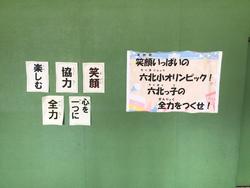 笑顔
協力
楽しむ
心を
一つに
全力
笑顔いっぱいの
六北小オリンピック！
六北っ子の
全力をつくせ！